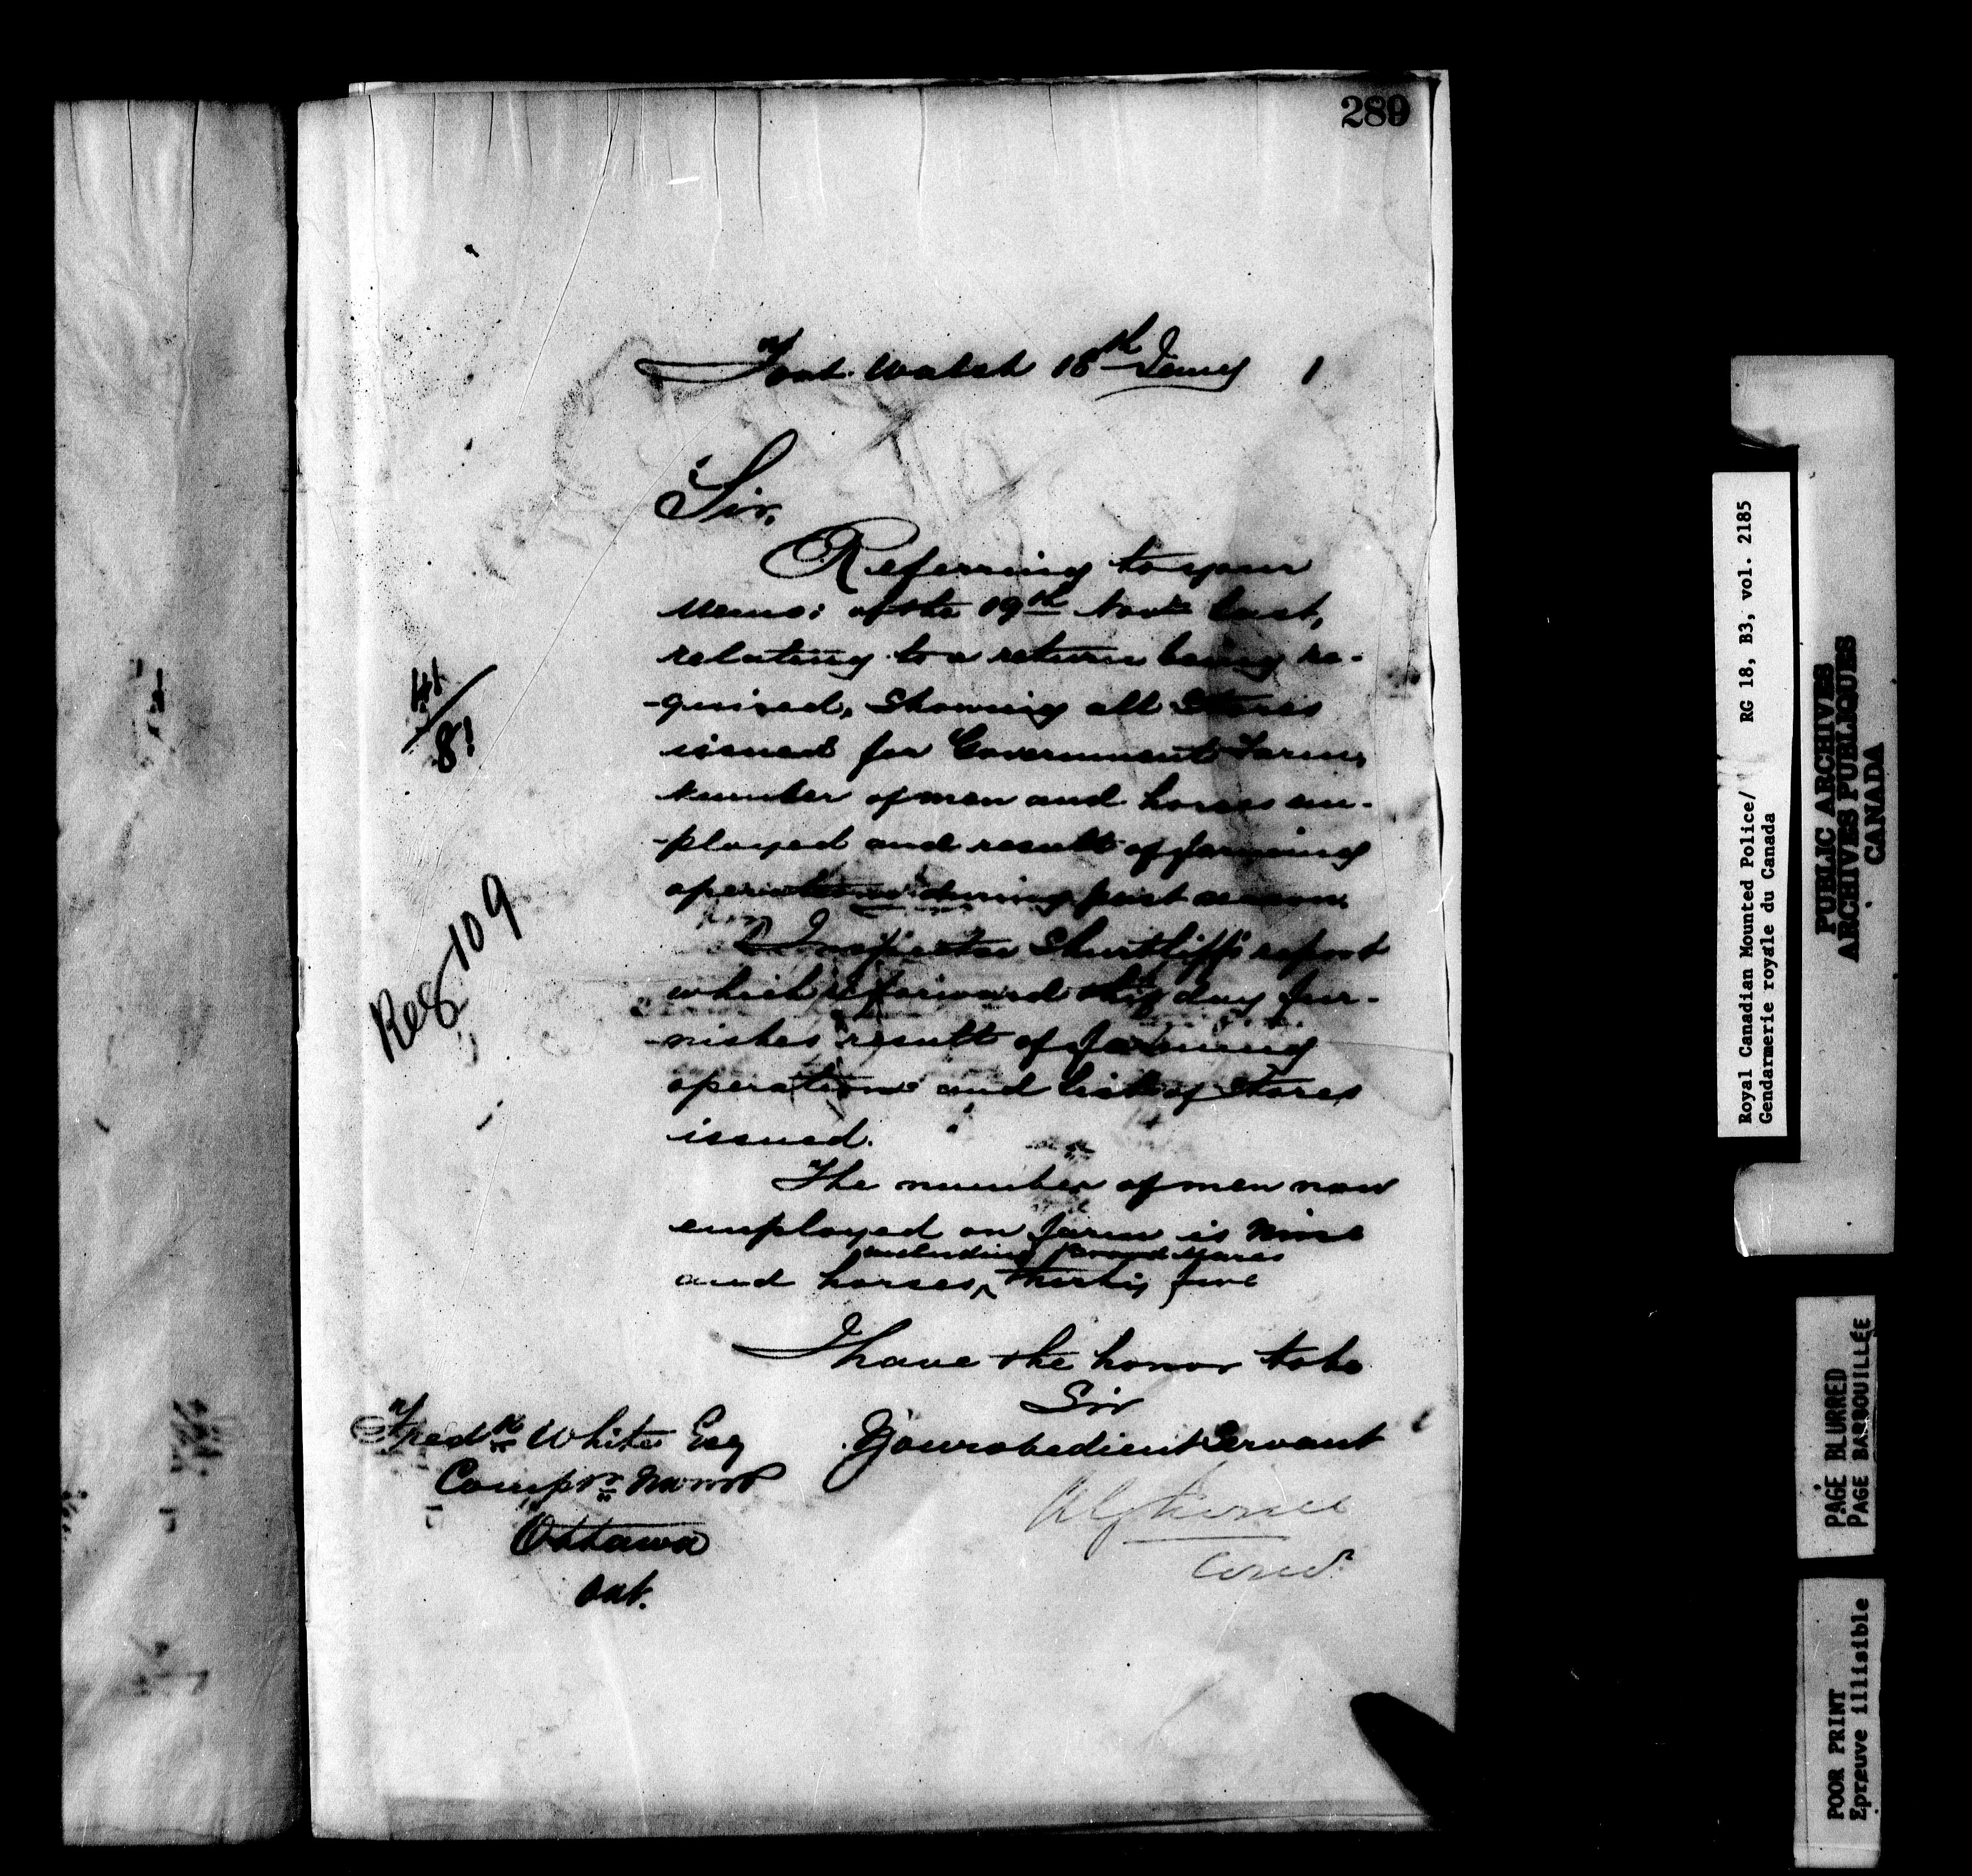 289
Fort Walsh 18th Jany 1
Sir,
Referring to your
Memo: of the 19th Novr last,
relating to a return being re-
-quired, Showing all Stores
issued for Government Farm,
number of men and horses em-
-ployed and result of farming
operations during past season.
Inspector Shurtliff's report
which I forward this day fur-
-nishes result of farming
operations and list of Stores
issued.
The number of men now
employed on farm is Nine
including brood Mares
and horses, ^ thirty five
I have the honor to be
Sir
Your obedient Servant
Comr.
Fredk White Esq
Compr NWMP
Ottawa
Ont.
41/81
Reg 109
Royal Canadian Mounted Police/ RG 18, B3, vol. 2185
Gendarmerie royale du Canada
PUBLIC ARCHIVES
ARCHIVES PUBLIQUES
CANADA
PAGE BLURRED
PAGE BARBOUILLÉE
POOR PRINT
Epreuve illisible